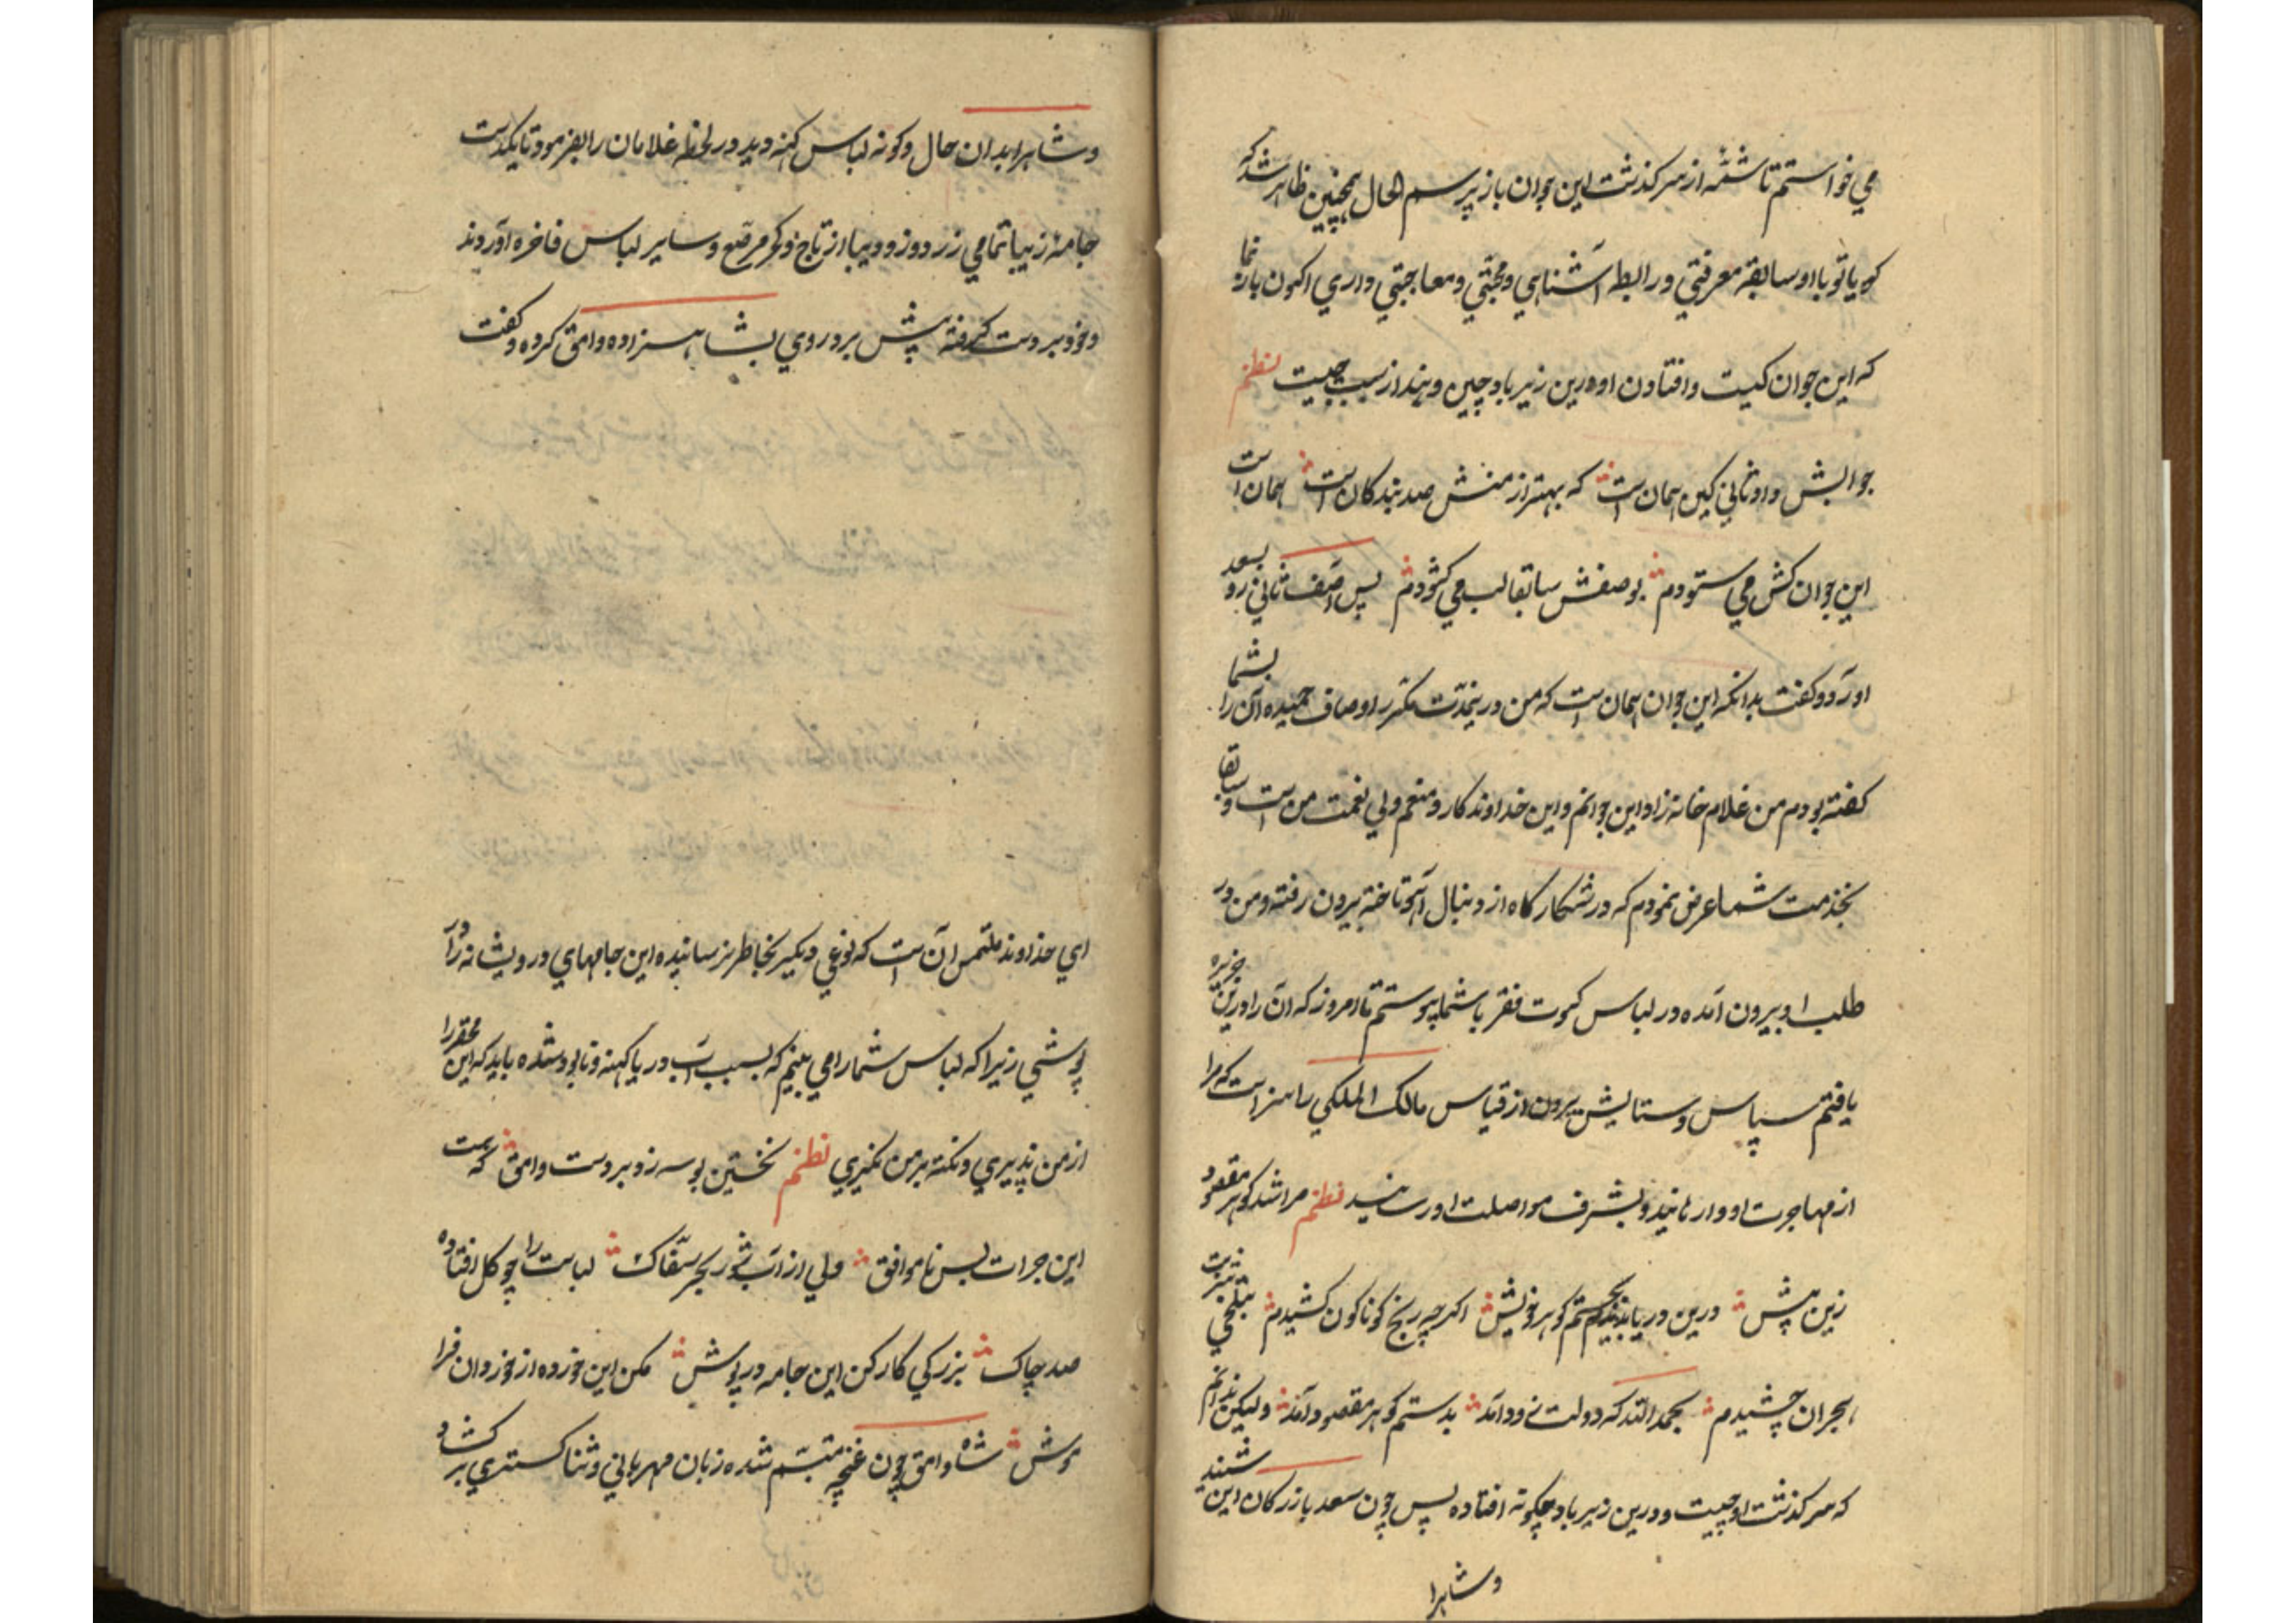 مي خواستم تا شمّه از سرکذشت این جوان باز پرسم الحال همچنین ظاهر شد که
کویا تو با او سابقهٔ معرفتي و رابطه آشنایي و محبّتي و مصاحبتي داري اکنون باز نما
که این جوان کیست و افتادن او درین زیرباد چین و هند از سبب چیست نظم
جوابش داد ثاني کین همان است که بهتر از منش صد بندکان است همان است
این جوان کش مي ستودم بوصفش سابقا لب مي کشودم پس آصف ثاني رو بسعد
آورد و کفت بدانکه این جوان همان است که من درینمدّت مکرّر اوصاف حمیده آن را بشما
کفته بودم من غلام خانه زاد این جوانم و این خداوندکار و منعم ولي نعمت من است و سابقا
بخدمت شما عرض نمودم که در شکارکاه از دنبال آهو تاخته بیرون رفته و من در
طلب او بیرون آمده در لباس کسوت فقر با شما پیوستم تا امروز که آن را درین جزیره
یافتم سپاس و ستایش بیرون از قیاس مالک الملکي را سزاست که مرا
از مهاجرت او وارهانید و بشرف مواصلت او رسانید نظم مرا شد کوهر مقصود
زین پیش درین دریا بجستم کوهر خویش اکرچه رنج کوناکون کشیدم بتلخي شربت
هجران چشیدم بحمد الله که دولت زود آمد بدستم کوهر مقصود آمد ولیکن ندانم
که سرکذشت او چیست و درین زیرباد چکونه افتاده پس چون سعد بازرکان این شنید
و شاهرا
و شاهرا بدان حال و کونه لباس کهنه دید در لحظه غلامان را بفرمود تا یکدست
جامهٔ زیبا تمامي زردوز و دیبا از تاج و کمر مرصّع و سایر لباس فاخره آوردند
و خود بر دست کرفته پیش برد و روي بشاهزاده وامق کرده و کفت
اي خداوند ملتمس آن است که نوعي دیکر بخاطر نرسانیده این جامهاي درویشانه را در
پوشي زیرا که لباس شما را مي بینم که بسبب آب دریا کهنه و نابود شده باید که این محقر را
از من پذیري و نکته بر من نکیري نظم نخستین بوسه زد بر دست وامق که هست
این جرات بس ناموافق ولي از آب شور بحر سفّاک لباست را چو کل افتاده
صد چاک بزرکي کار کن این جامه در پوش مکن این خورده از خوردان فرا
موش شاه وامق چون غنچه متبسّم شده زبان مهرباني و ثناکستري بر کشاد